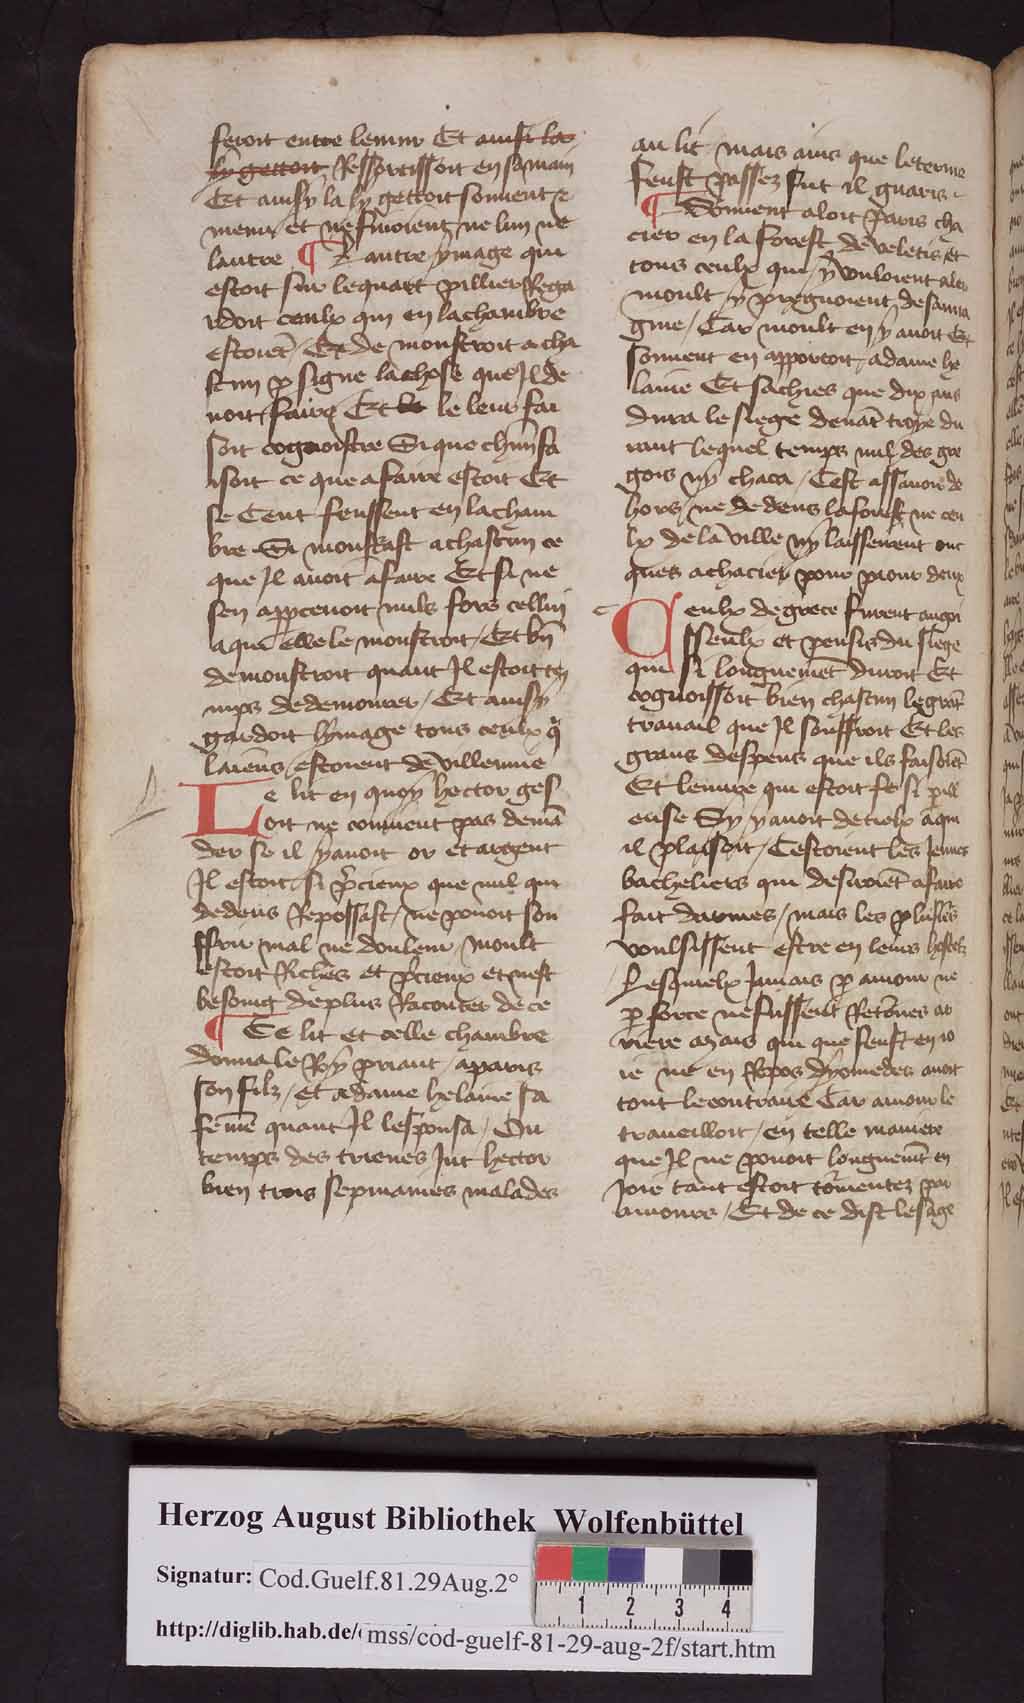 feroit entre lemur Et ainsi la
ly gettoit Ressortissoit en sa main
Et ainsy la ly gettoit souuent et
menu et ne finoient ne lun ne
lautre ¶ Lautre ymage qui
estoit sur le quart pillier Rega
rdoit ceulx qui en la chambre
estoiēt / Et de monstroit a cha
scun p signe la chose que Il de
uoit faire Et le leur fai
soit cognoistre Si que chūn fa
isoit ce que a faire estoit Et
se Cent feussent en la cham
bre Si monstrast a chascun ce
que Il auoit a faire Et si ne
sen appceuoit nuls fors cellui
a qui elle le monstroit / Et bn̄
demonstroit quant Il estoit te
mps de demourer / Et ainsy
gardoit lymage tous ceulx q̄
laiens estoient de villennie
Le lit en quoy hector ges
oit ne conuient pas demā
der se il y auoit or et argent
Il estoit si p̄cieux que nul qui
dedens Repossast / ne pouoit sou
ffrir mal ne douleur / moult
estoit Riches et p̄cieux et nest
besoing de plus Raconter de ce
¶ Ce lit et celle chambre
donna le Roy priant / a paris
son filz / et a dame helaine sa
fēme quant Il lesponsa / Ou
temps des trieues Iut hector
bien trois sepmaines malades
au lit mais ains que le terme
feust passez fut il guaris
¶ Souuent aloit paris cha
cier en la forest de veletis et
tous ceulx qui y vouloient aler
moult y pregnoient de sauua
gine / Car moult en y auoit Et
souuent en apportoit a dame he
laine Et sachies que dix ans
dura le siege deuāt troye du
rant lequel temps nul des gre
gois ny chaca / Cest assauoir de
hors / ne de dens la forest ne ceu
lx de la ville ny laisserent onc
ques a chacier pour paour deux
Ceulx de grece furent angoi
sseulx et pensis du siege
qui si longuemēt duroit Et
cognoissoit bien chascun le grāt
trauail que Il souffroit Et les
grans despens que ils faisoiēt
Et leuure qui estoit si pill
euse Sy y auoit de tielx a qui
il plaisoit / Cestoient les Ieunes
bacheliers qui desiroiēt a faire
fait darmes / mais les plusieͬs
voulsissent estre en leurs hostelz
Lesquielx Iamais p amour ne
p force ne fussent Retōnes ar
riere mais qui que feust en io
ie ne en Repos dyomedes auoit
tout le contraire Car amour le
traueilloit / en telle maniere
que Il ne pouoit longuemēt en
Ioie tant estoit tormentez par
amours / Et de ce dist le sage
Herzog August Bibliothek Wolfenbüttel
Signatur: Cod.Guelf.81.29Aug.2°
1 2 3 4
http://diglib.hab.de/ mss/cod-guelf-81-29-aug-2f/start.htm